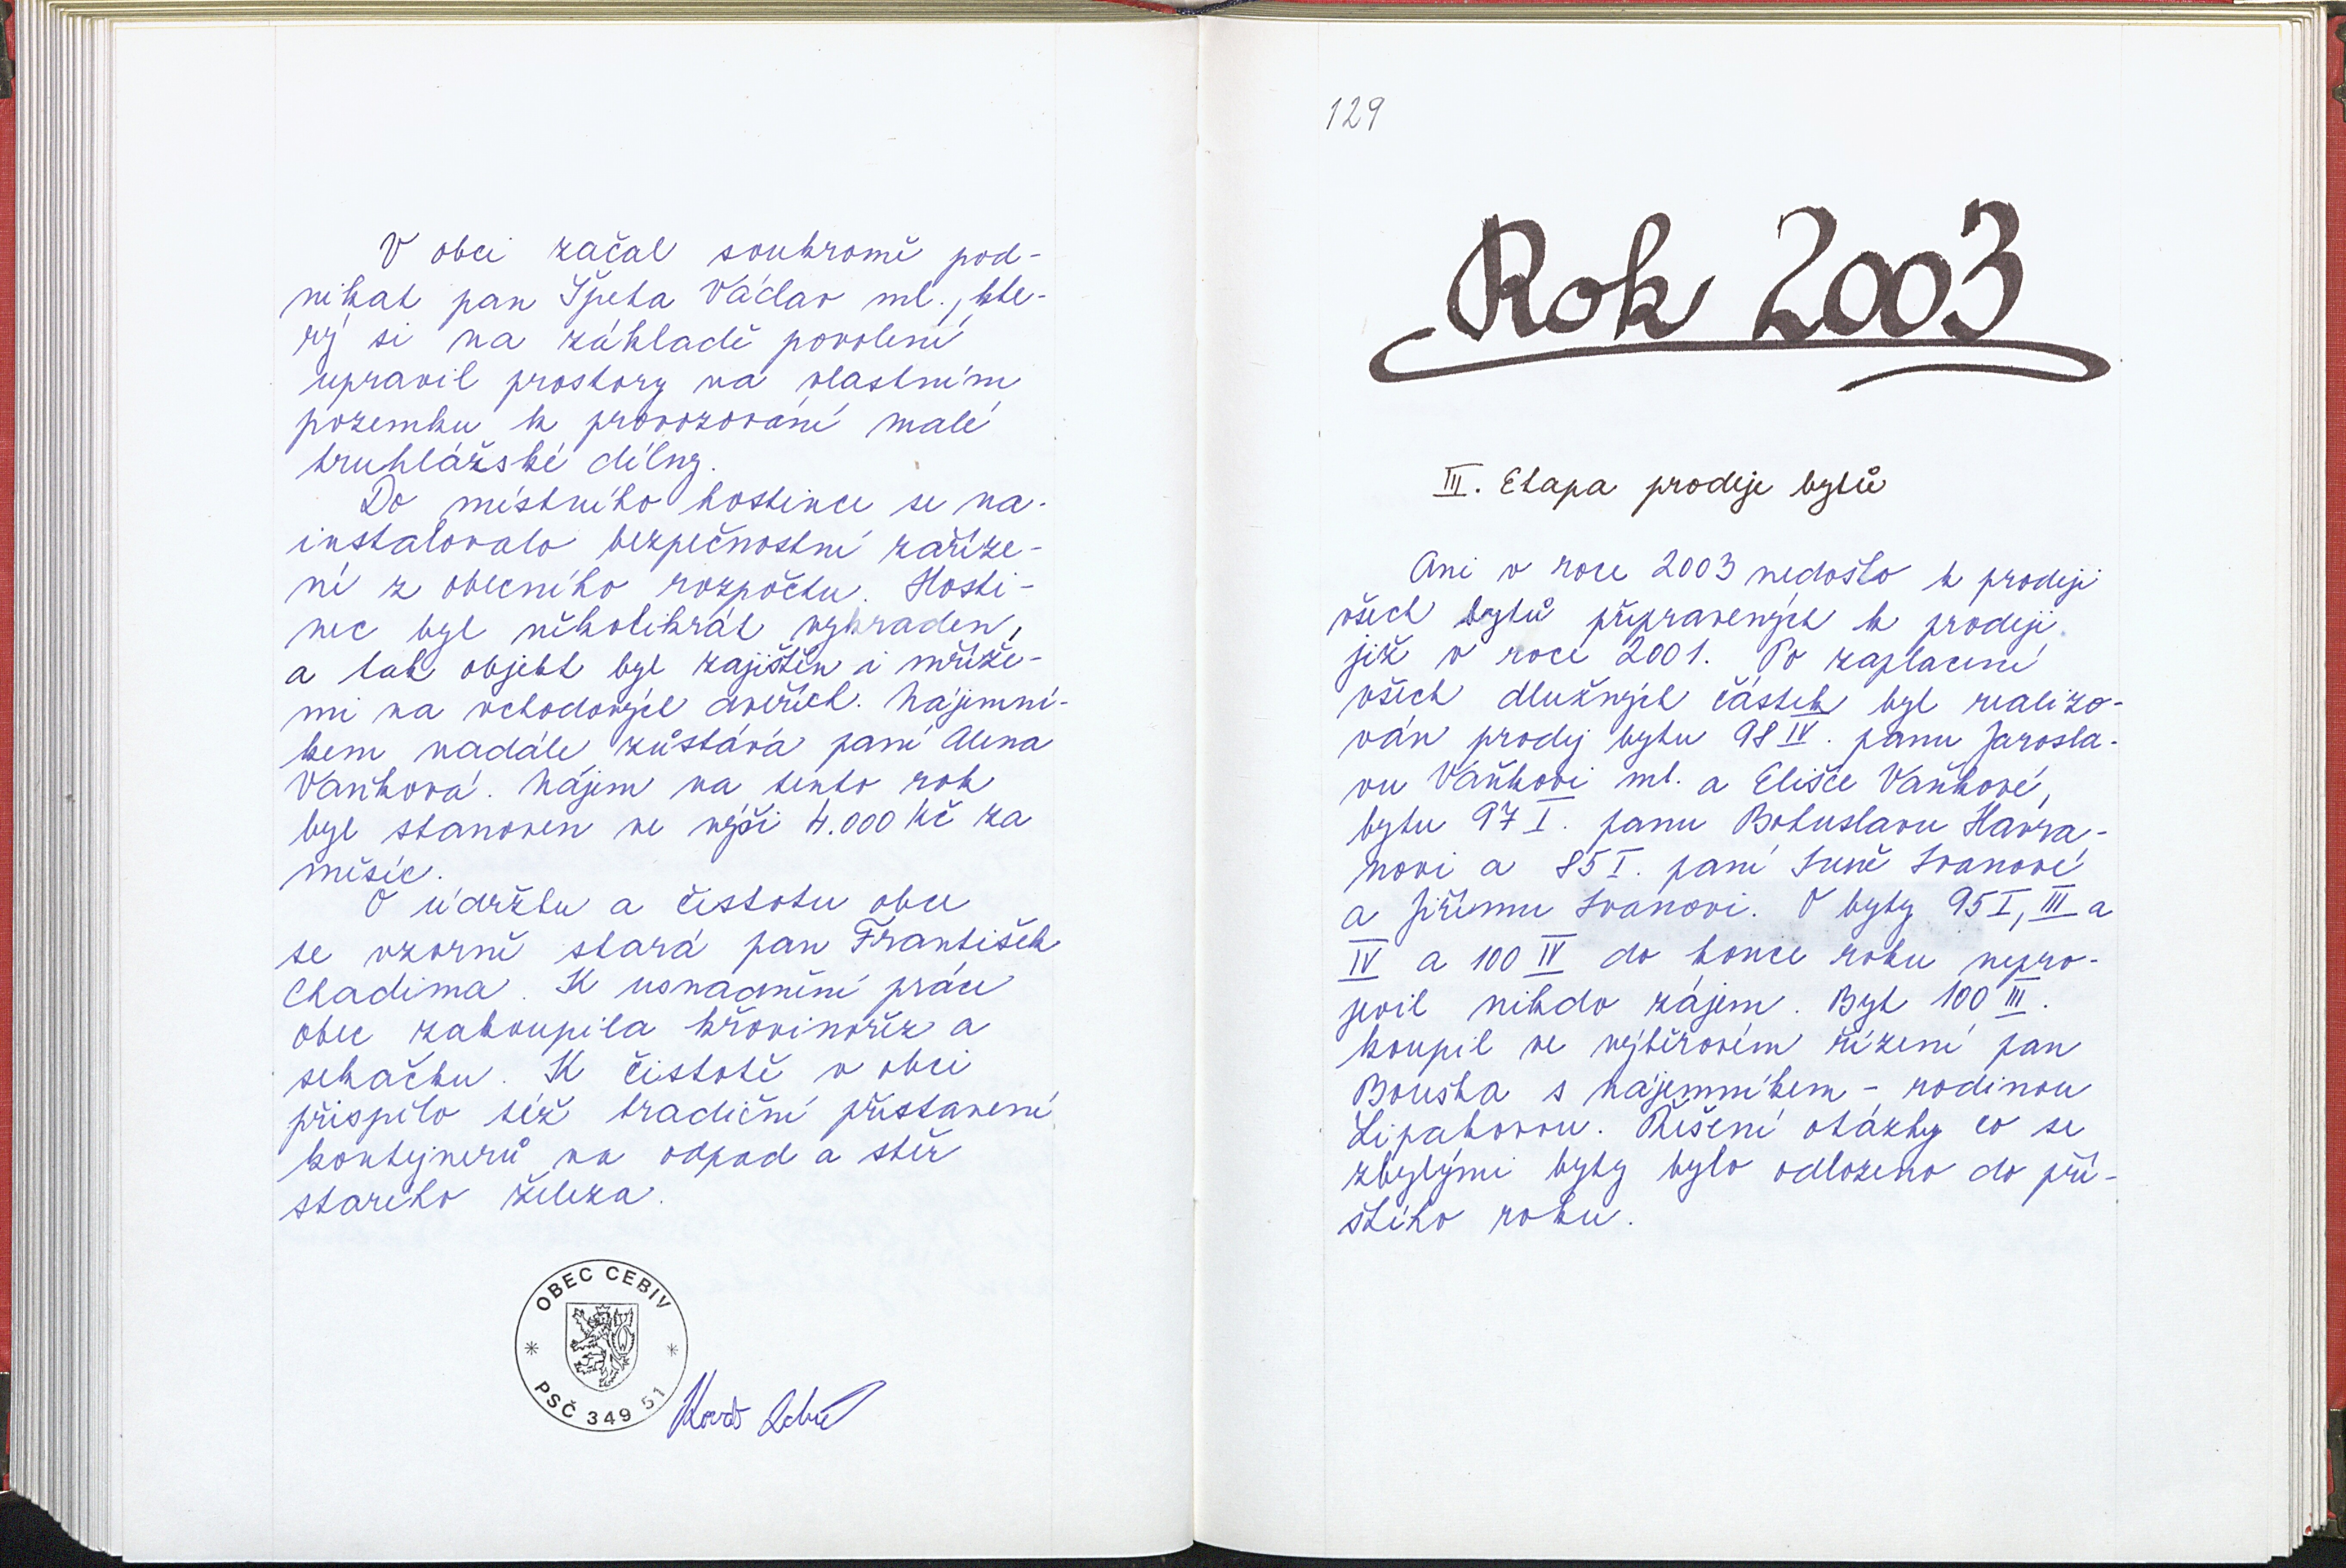 V obci začal soukromě pod-
nikat pan Špeta Václav ml., kte-
rý si na základě povolení
upravil prostory na vlastním
pozemku k provozování malé
truhlářské dílny.
Do místního hostince se na-
instalovalo bezpečnostní zaříze-
ní z obecního rozpočtu. Hosti-
nec byl několikrát vykraden,
a tak objekt byl zajištěn i mříže-
mi na vchodových dveřích. Nájemní-
kem nadále zůstává paní Alena
Vaňková. Nájem na tento rok
byl stanoven ve výši 4.000 Kč za
měsíc.
O údržbu a čistotu obce
se vzorně stará pan František
Chadima. K usnadnění práce
obec zakoupila křovinořez a
sekačku. K čistotě v obci
přispělo též tradiční přistavení
kontejnerů na odpad a sběr
starého železa.
OBEC CEBIV
PSČ 349 51
129
Rok 2003
III. Etapa prodeje bytů
Ani v roce 2003 nedošlo k prodeji
všech bytů připravených k prodeji
již v roce 2001. Po zaplacení
všech dlužných částek byl realizo-
ván prodej bytu 98 IV. panu Jarosla-
vu Vaňkovi ml. a Elišce Vaňkové,
bytu 97 I. panu Bohuslavu Havra-
novi a 85 I. paní Ivanové
a Jiřímu Ivanovi. O byty 95 I, III a
IV a 100 IV do konce roku nepro-
jevil nikdo zájem. Byt 100 III.
koupil ve výběrovém řízení pan
Bouška s nájemníkem - rodinou
Lipakovou. Řešení otázky co se
zbylými byty bylo odloženo do pří-
štího roku.